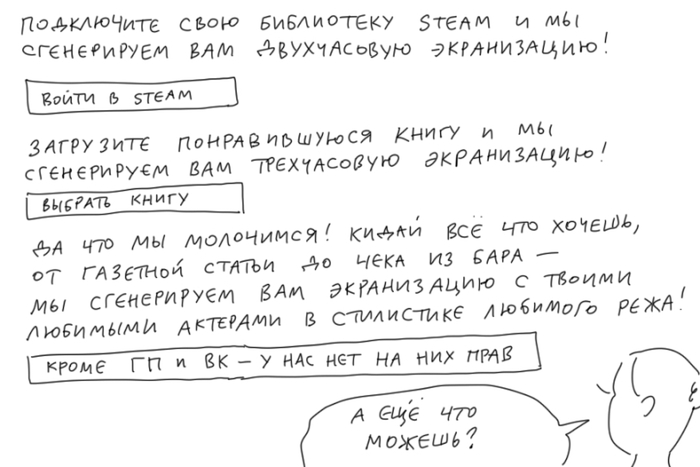 ПОДКЛЮЧИТЕ СВОЮ БИБЛИОТЕКУ STEAM И МЫ
СГЕНЕРИРУЕМ ВАМ ДВУХЧАСОВУЮ ЭКРАНИЗАЦИЮ!
ВОЙТИ В STEAM
ЗАГРУЗИТЕ ПОНРАВИВШУЮСЯ КНИГУ И МЫ
СГЕНЕРИРУЕМ ВАМ ТРЕХЧАСОВУЮ ЭКРАНИЗАЦИЮ!
ВЫБРАТЬ КНИГУ
ДА ЧТО МЫ МОЛОЧИМСЯ! КИДАЙ ВСЁ ЧТО ХОЧЕШЬ,
ОТ ГАЗЕТНОЙ СТАТЬИ ДО ЧЕКА ИЗ БАРА —
МЫ СГЕНЕРИРУЕМ ВАМ ЭКРАНИЗАЦИЮ С ТВОИМИ
ЛЮБИМЫМИ АКТЕРАМИ В СТИЛИСТИКЕ ЛЮБИМОГО РЕЖА!
КРОМЕ ГП И ВК — У НАС НЕТ НА НИХ ПРАВ
А ЕЩЁ ЧТО
МОЖЕШЬ?